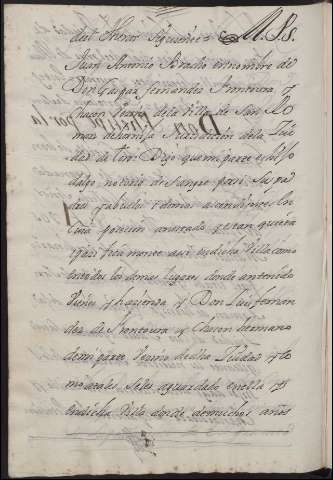 del thenor siguiente = M. P. S.
Juan Antonio en nombre de
Don Gaspar fernandez frontoura y
Chacon Vezino de la villa de San Ro
man de la Jurisdiccion de la Ciu
dad de Toro Digo que mi parte es hijo
dalgo notorio de sangre por si su pad
dre y abuelo y demas ascendientes en
cuia posesion an estado y estan quieta
y pazificamente asi en dicha Villa como
en todos los demas lugares donde an tenido
Vienes y hazienda y Don Luis fernan
dez de frontoura y Chacon hermano
de mi parte Vezino de dha Ciudad y to
mo se les a guardado en ella y
en dicha Villa donde de muchos años